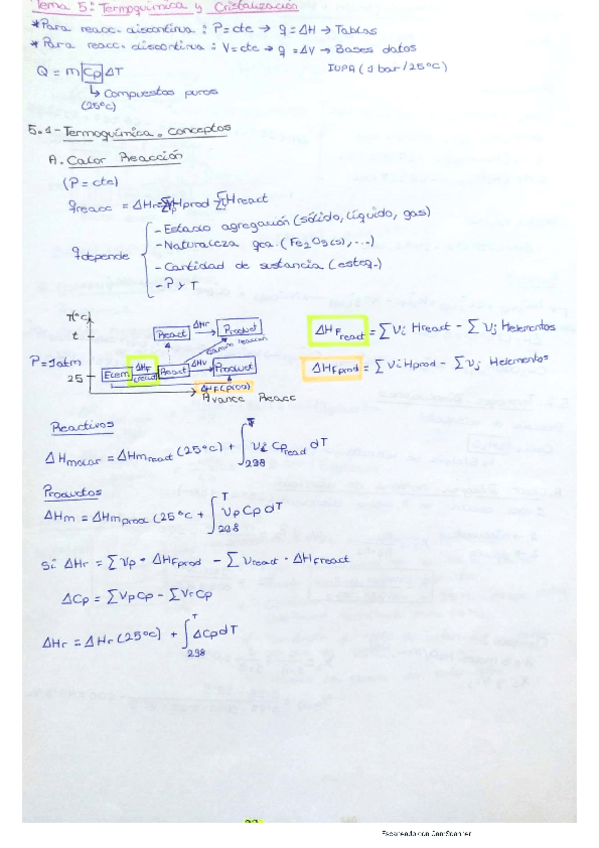 Tema 5: Termoquímica y Cristalización
*Para reacc. discontinua : P=cte → q=ΔH → Tablas
* Para reacc. discontinua : V=cte → q=ΔV → Bases datos
IUPA (1 bar/25ºC)
Q = m Cp ΔT
↳ Compuestos puros
(25ºC)
5.1- Termoquímica. Conceptos
A. Calor Reacción
(P = cte)
qreacc = ΔHr = Hprod - Hreact
qdepende
- Estado agregación (sólido, líquido, gas)
- Naturaleza qca. (Fe2O3(s),...)
- Cantidad de sustancia (esteq.)
- P y T
T(ºC)
t
React ΔHr Product
P=1atm
25
Elem ΔHf React ΔHr Product
ΔHf(prod)
Avance Reacc
ΔHf react = ∑νi Hreact - ∑νj Helementos
ΔHf prod = ∑νi Hprod - ∑νj Helementos
Reactivos
ΔHmolar = ΔHm react (25ºC) + ∫298^T νi Cp read dT
Productos
ΔHm = ΔHm prod (25ºC + ∫298^T νp Cp dT
Si ΔHr = ∑νp · ΔHf prod - ∑νreact · ΔHf react
ΔCp = ∑νp Cp - ∑νr Cp
ΔHr = ΔHr (25ºC) + ∫298^T ΔCp dT
Escaneado con CamScanner